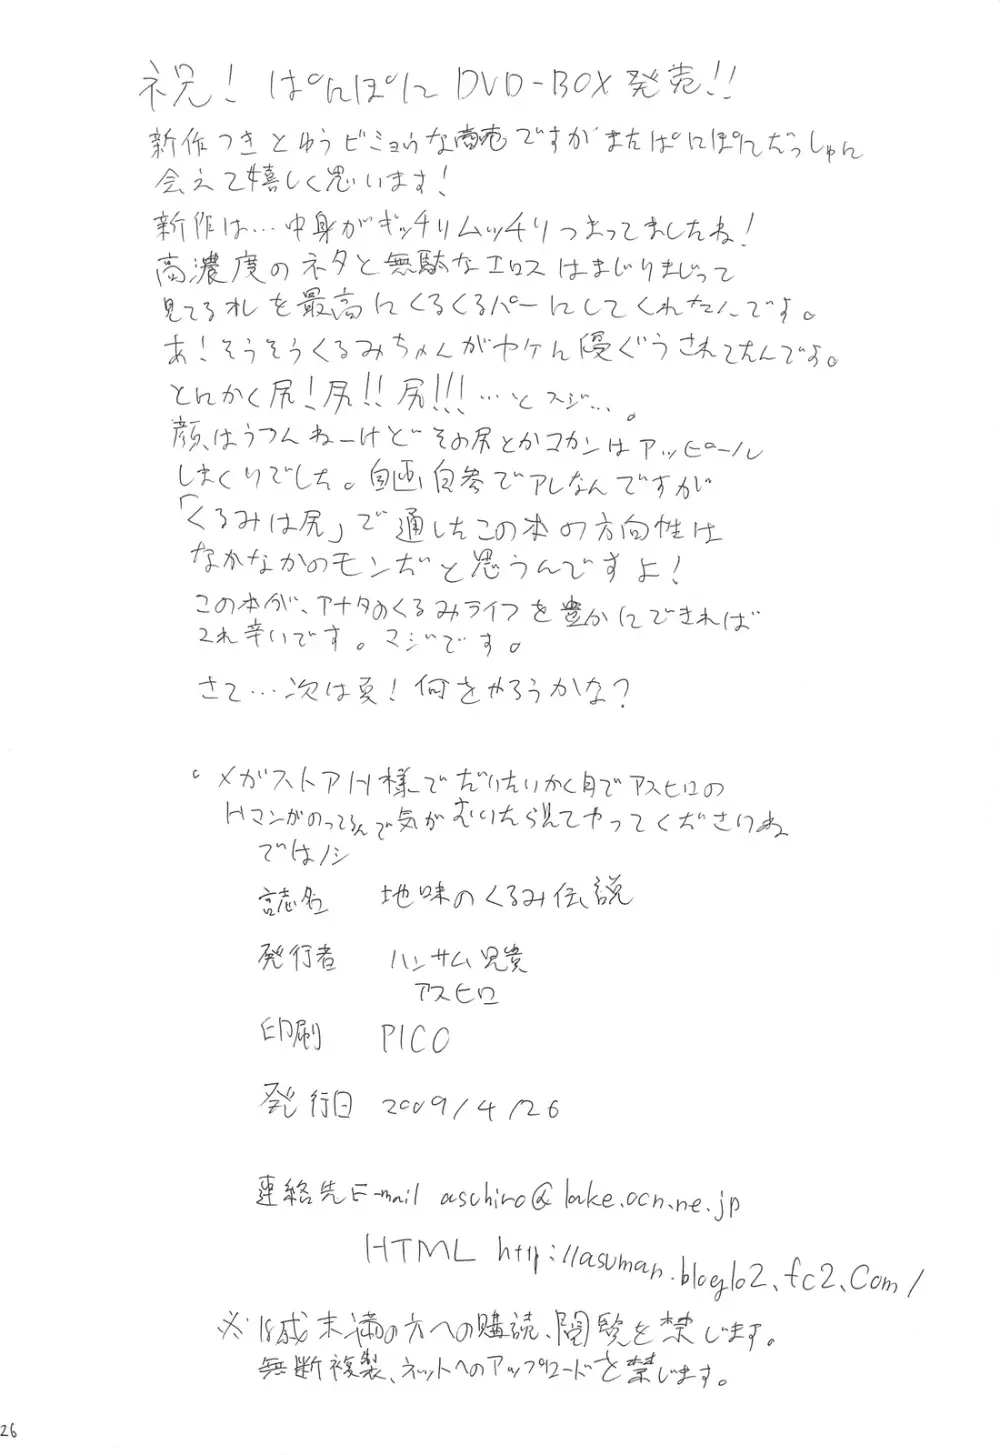 祝!ぱにぽに DVD-BOX 発売!!
新作つきとゆうビミョウな商売ですがまたぱにぽにだっしゅに
会えて嬉しく思います!
新作は…中身がギッチリムッチリつまってましたね!
高濃度のネタと無駄なエロスはまじりまじって
見てるオレを最高にくるくるパーにしてくれたんです。
あ!そうそうくるみちゃんがヤケに優ぐうされてたんですよ。
とにかく尻!尻!!尻!!!…とスジ…。
顔はうつんねーけどその尻とかコカンはアッピール
しまくりでした。自画自参でアレなんですが
「くるみは尻」で通したこの本の方向性は
なかなかのモンだと思うんですよ!
この本が、アナタのくるみライフを豊かにできれば
これ幸いです。マジです。
さて…次は夏!何をやろうかな?
。メガストアH様でだいたいかく月でアスヒロの
Hマンガのってるんで気がむいたら見てやってくださいね
ではノシ
誌名 地味のくるみ伝説
発行者 ハンサム兄貴
アスヒロ
印刷 PICO
発行日 2009/4/26
連絡先 E-mail aschiro@lake.ocn.ne.jp
HTML http://asuman.blog102.fc2.com/
※18歳未満の方への購読、閲覧を禁じます。
無断複製、ネットへのアップロードを禁じます。
26